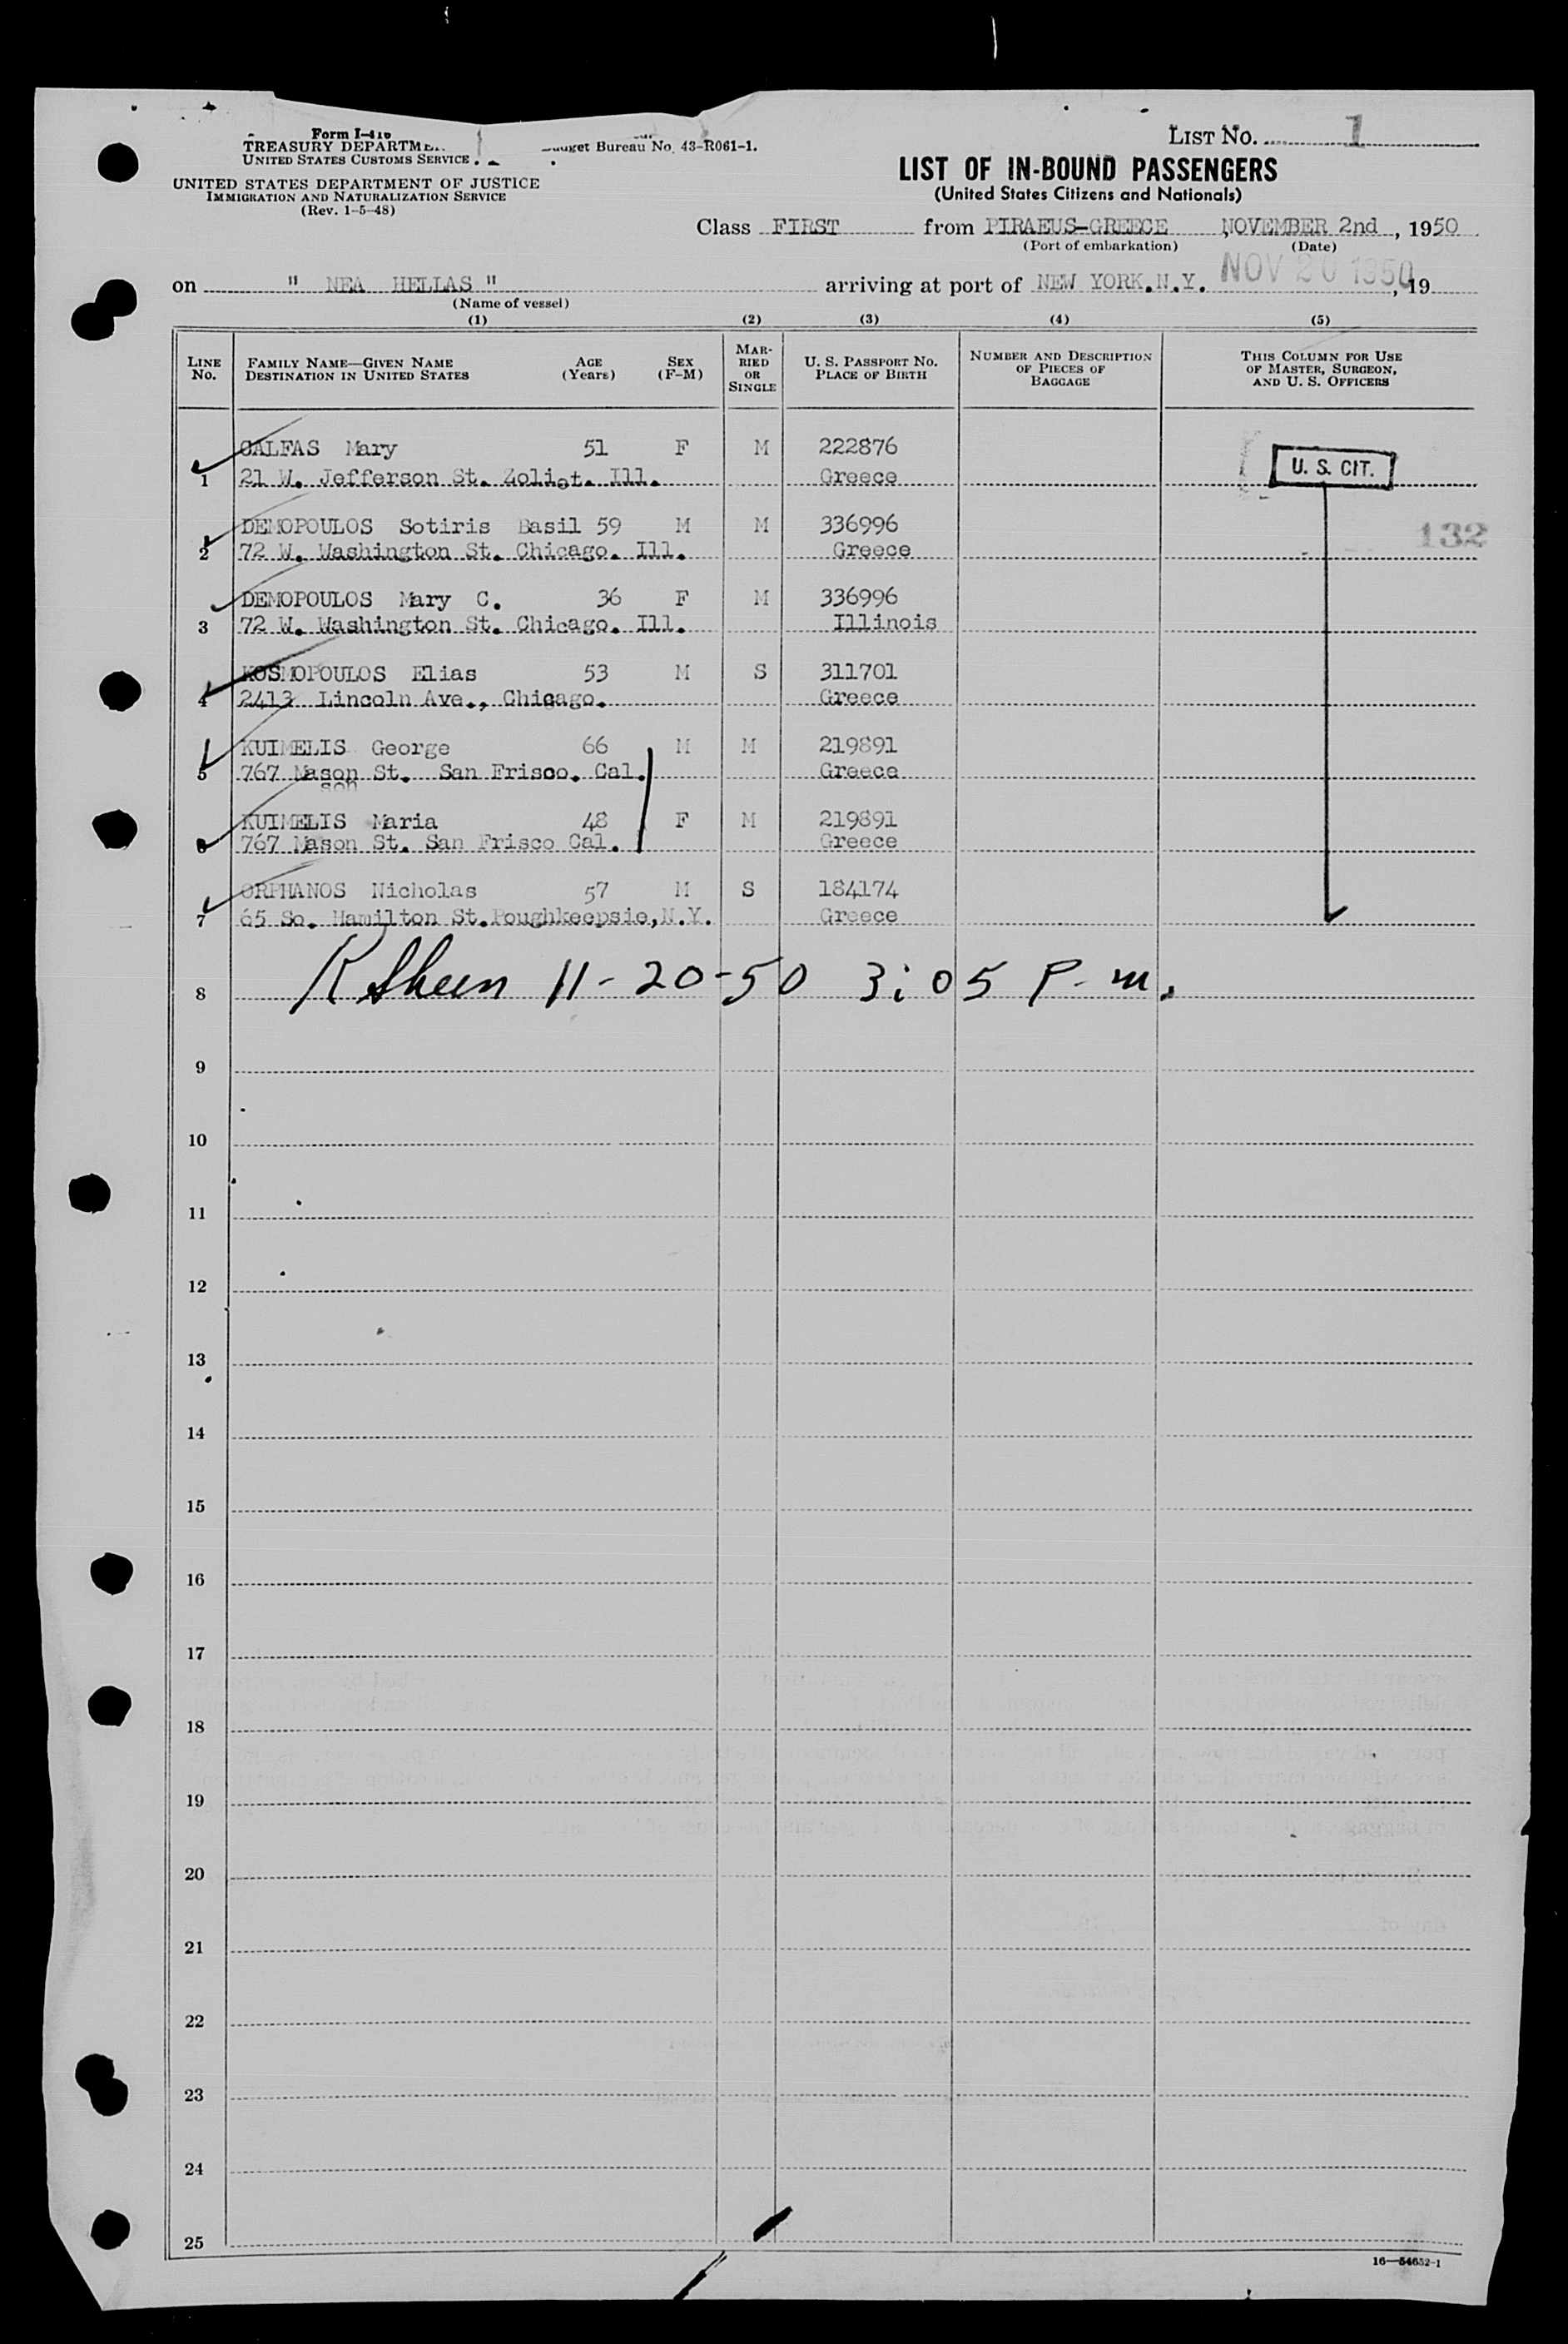 LIST No. 1
Form I-416
TREASURY DEPARTME
UNITED STATES CUSTOMS SERVICE
Budget Bureau No. 43-R061-1.
LIST OF IN-BOUND PASSENGERS
(United States Citizens and Nationals)
UNITED STATES DEPARTMENT OF JUSTICE
IMMIGRATION AND NATURALIZATION SERVICE
(Rev. 1-5-48)
Class FIRST from PIRAEUS-GREECE NOVEMBER 2nd, 1950
(Port of embarkation) (Date)
on " NEA HELLAS " arriving at port of NEW YORK.N.Y. NOV 20 1950, 19
(Name of vessel)
(1) (2) (3) (4) (5)
LINE No. FAMILY NAME—GIVEN NAME DESTINATION IN UNITED STATES AGE (Years) SEX (F-M) MARRIED OR SINGLE U. S. PASSPORT NO. PLACE OF BIRTH NUMBER AND DESCRIPTION OF PIECES OF BAGGAGE THIS COLUMN FOR USE OF MASTER, SURGEON, AND U. S. OFFICERS
CALFAS Mary 51 F M 222876
U. S. CIT.
1 21 W. Jefferson St. Zoliet. Ill. Greece
DEMOPOULOS Sotiris Basil 59 M M 336996
132
2 72 W. Washington St. Chicago. Ill. Greece
DEMOPOULOS Mary C. 36 F M 336996
3 72 W. Washington St. Chicago. Ill. Illinois
KOSMOPOULOS Elias 53 M S 311701
4 2413 Lincoln Ave., Chicago. Greece
KUIMELIS George 66 M M 219891
5 767 Mason St. San Frisco. Cal. Greece
son
KUIMELIS Maria 48 F M 219891
6 767 Mason St. San Frisco Cal. Greece
ORPHANOS Nicholas 57 M S 184174
7 65 So. Hamilton St.Poughkeepsie,N.Y. Greece
8 R Sheen 11-20-50 3:05 P.m.
9
10
11
12
13
14
15
16
17
18
19
20
21
22
23
24
25
16—54652-1